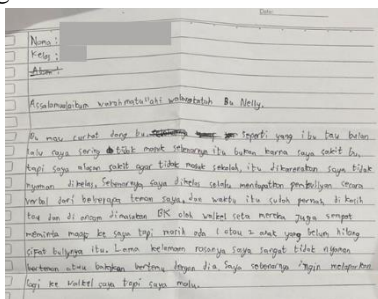 Date:
Nama :
Kelas :
Alamat :
Assalamualaikum warahmatullahi wabarakatuh Bu Nelly.
Bu mau curhat dong bu seperti yang ibu tau bulan
lalu saya sering tidak masuk sebenarnya itu bukan karna saya sakit bu,
tapi saya alasan sakit agar tidak masuk sekolah, itu dikarenakan saya tidak
nyaman dikelas. Sebenarnya saya dikelas selalu mendapatkan pembullyan secara
verbal dari beberapa teman saya, dan waktu itu sudah pernah di kasih
tau dan di ancam dimasukan BK oleh walkel serta mereka juga sempat
meminta maap ke saya tapi masih ada 1 atau 2 anak yang belum hilang
sifat bullynya itu. Lama kelamaan rasanya saya sangat tidak nyaman
berteman atau bahkan bertemu dengan dia. Saya sebenarnya ingin melaporkan
lagi ke walkel saya tapi saya malu.